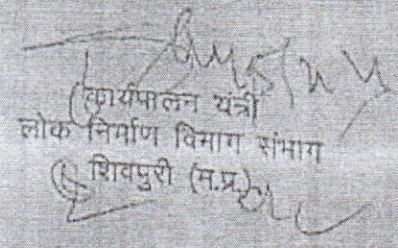 कार्यपालन यंत्री
लोक निर्माण विभाग संभाग
शिवपुरी (म.प्र.)